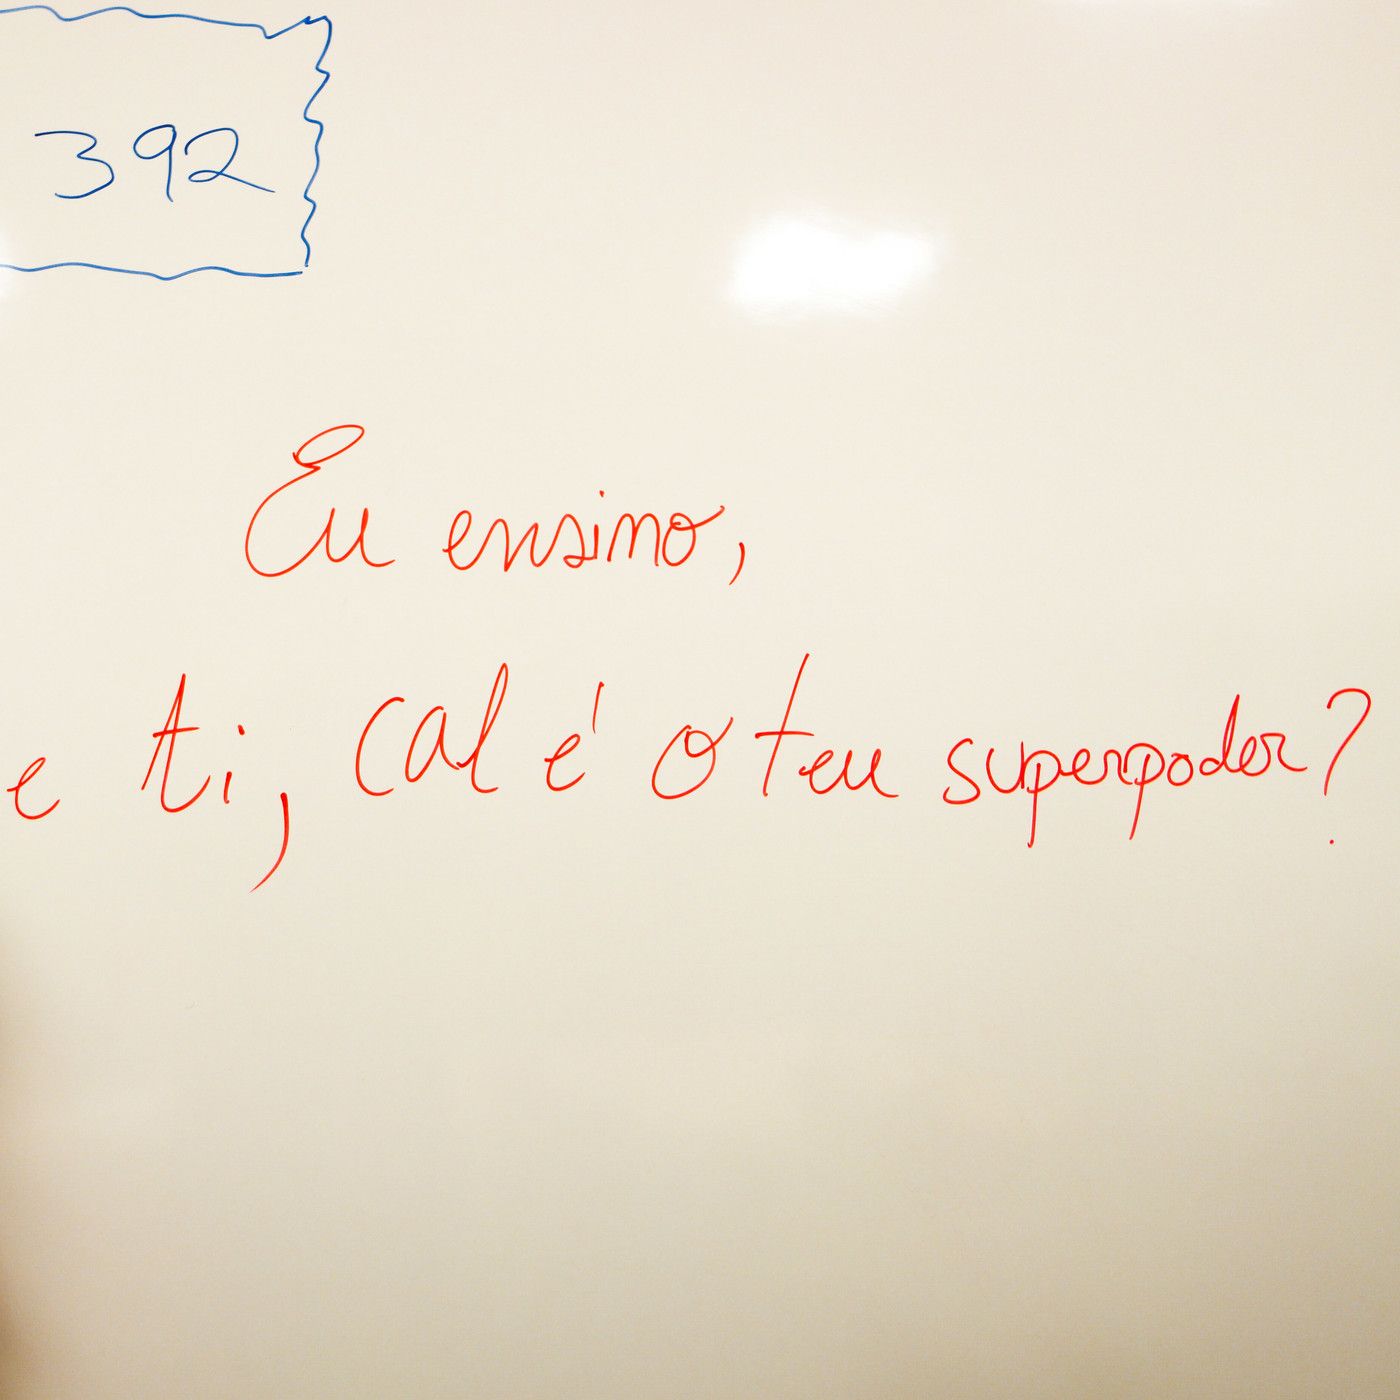 392
Eu ensino,
e ti, cal é o teu superpoder?